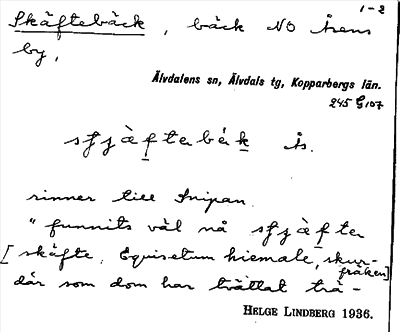 1-2
Skäftebäck, bäck NO Åsens
by,
Älvdalens sn, Älvdals tg, Kopparbergs län.
245 G 107
sʃjäftebek is.
rinner till Snipan.
"funnits väl nå sʃjäfte
[skäfte, Equisetum hiemale, skur-
fräken]
där som dom har tvättat trä-
HELGE LINDBERG 1936.